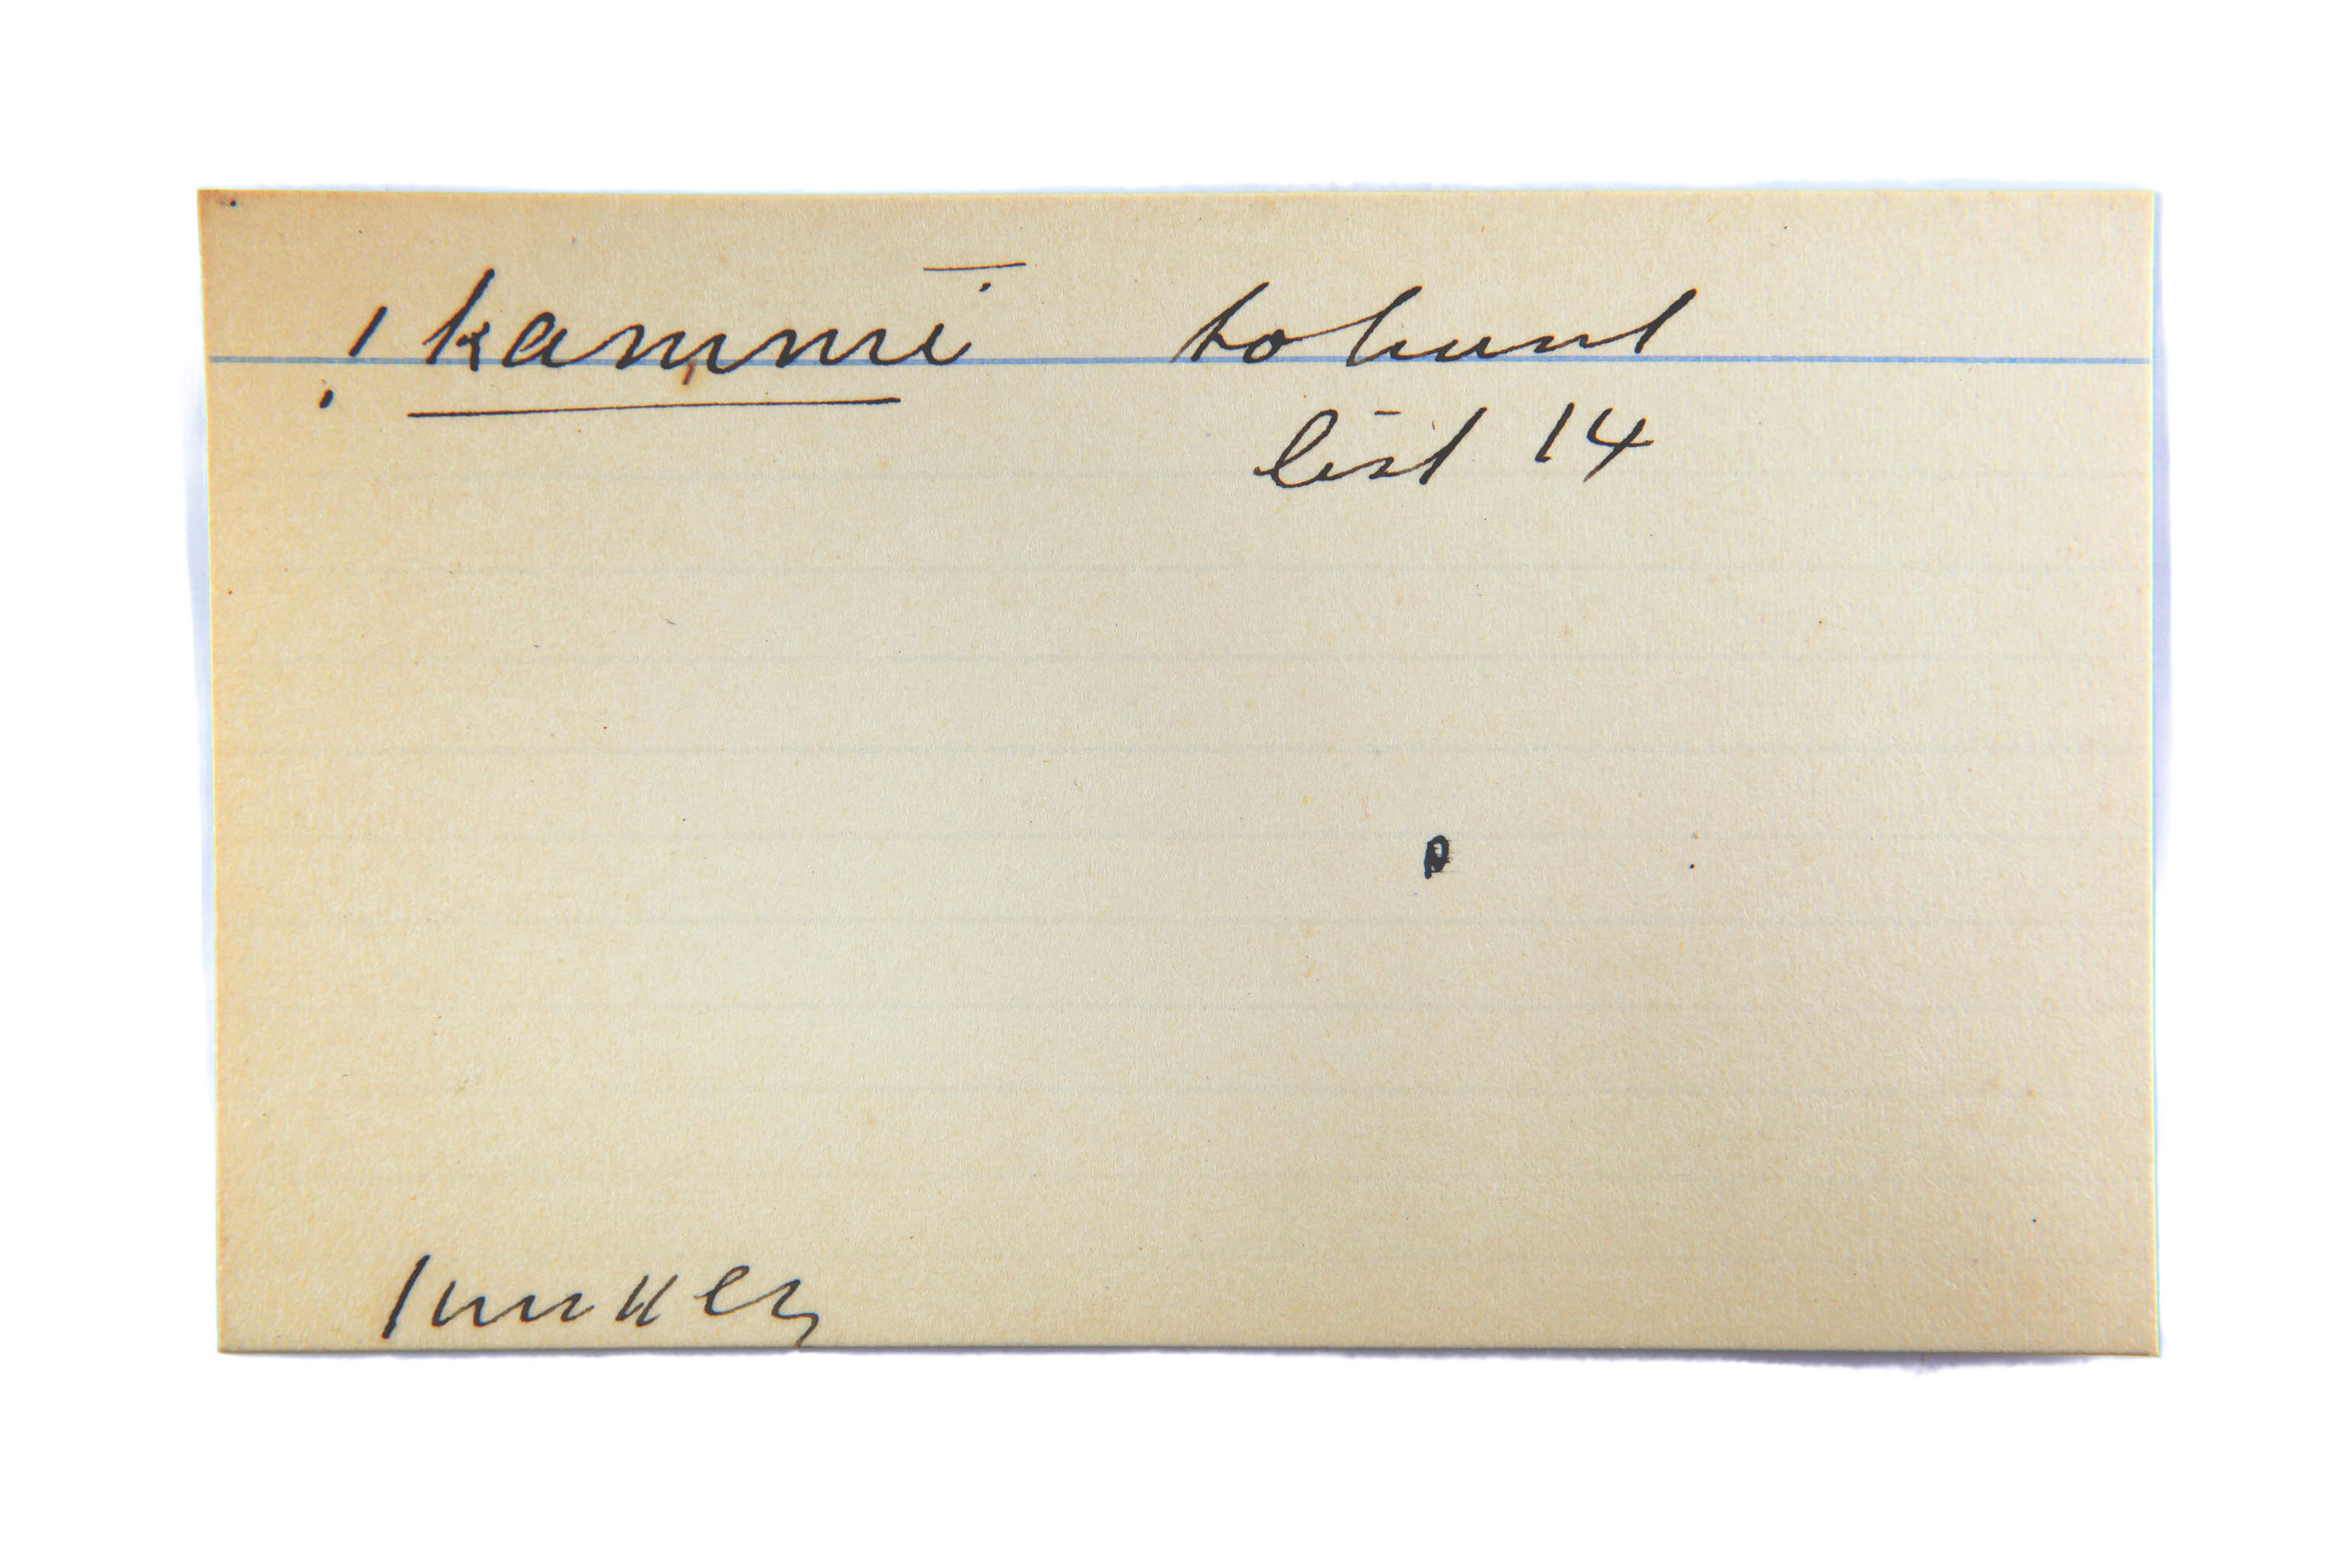 ! kammī to hunt
list 14
Tunkey